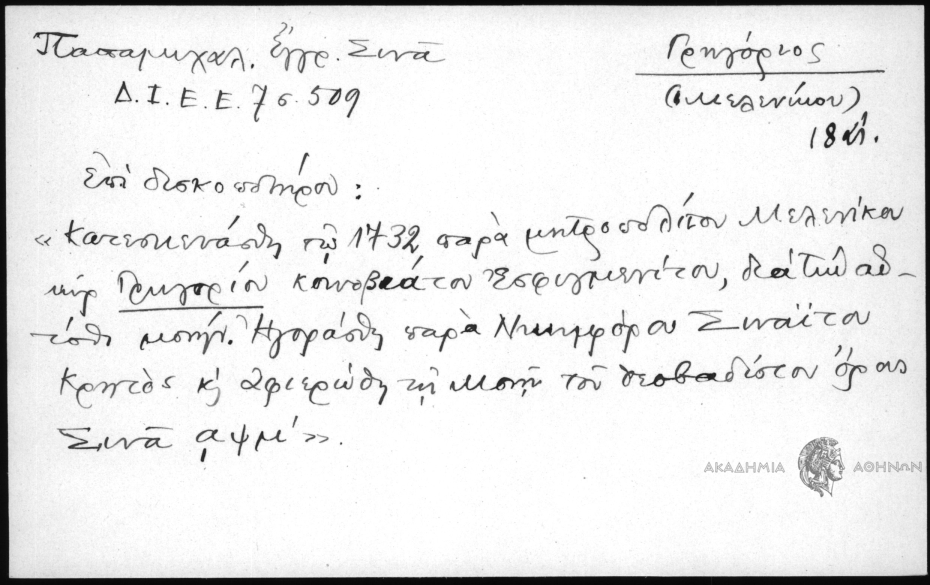 Παπαμιχαλ. Ἔγγρ. Σινᾶ
Δ.Ι.Ε.Ε. 7 σ. 509
Γρηγόριος
(Μελενίκου)
18 αἰ.
Ἐπὶ δισκοποτήρου:
«Κατεσκευάσθη τῷ 1732 παρὰ μητροπολίτου Μελενίκου
κὺρ Γρηγορίου κοινοβιάτου Ἐσφιγμενίτου, διὰ τὴν αὐ-
τόθι μονήν. Ἠγοράσθη παρὰ Νικηφόρου Σιναΐτου
Κρητὸς κ̀ ἀφιερώθη τῇ Μονῇ τοῦ θεοβαδίστου ὄρους
Σινᾶ ͵αψμ΄».
ΑΚΑΔΗΜΙΑ ΑΘΗΝΩΝ